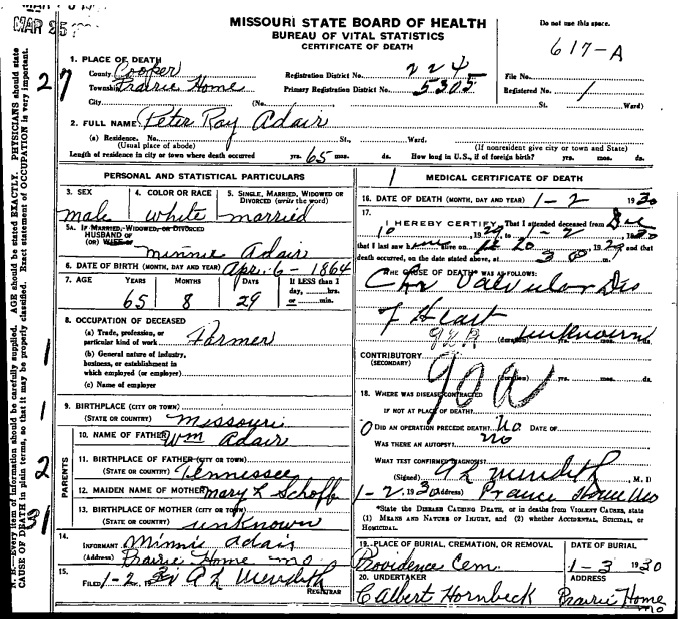 MAR 25
MISSOURI STATE BOARD OF HEALTH
BUREAU OF VITAL STATISTICS
CERTIFICATE OF DEATH
Do not use this space.
617-A
N. B.—Every item of information should be carefully supplied. AGE should be stated EXACTLY. PHYSICIANS should state
CAUSE OF DEATH in plain terms, so that it may be properly classified. Exact statement of OCCUPATION is very important.
1. PLACE OF DEATH
County Cooper
Registration District No. 224
File No.
Township Prairie Home
Primary Registration District No. 5305
Registered No. 1
City (No. St. Ward)
2. FULL NAME Peter Ray Adair
(a) Residence. No. St., Ward.
(Usual place of abode) (If nonresident give city or town and State)
Length of residence in city or town where death occurred yrs. 65 mos. ds. How long in U.S., if of foreign birth? yrs. mos. ds.
PERSONAL AND STATISTICAL PARTICULARS
3. SEX 4. COLOR OR RACE 5. SINGLE, MARRIED, WIDOWED OR
DIVORCED (write the word)
male white married
5A. IF MARRIED, WIDOWED, OR DIVORCED
HUSBAND OF
(OR) WIFE OF Minnie Adair
6. DATE OF BIRTH (MONTH, DAY AND YEAR) Apr. 6 - 1864
7. AGE YEARS MONTHS DAYS If LESS than 1
day, hrs.
or min.
65 8 29
8. OCCUPATION OF DECEASED
(a) Trade, profession, or
particular kind of work Farmer
(b) General nature of industry,
business, or establishment in
which employed (or employer)
(c) Name of employer
9. BIRTHPLACE (CITY OR TOWN)
(STATE OR COUNTRY) Missouri
PARENTS
10. NAME OF FATHER Wm Adair
11. BIRTHPLACE OF FATHER (CITY OR TOWN)
(STATE OR COUNTRY) Tennessee
12. MAIDEN NAME OF MOTHER Mary L Schoff
13. BIRTHPLACE OF MOTHER (CITY OR TOWN)
(STATE OR COUNTRY) unknown
14.
INFORMANT Minnie Adair
(Address) Prairie Home Mo
15.
FILED 1-2, 1930 A L Meredith
REGISTRAR
MEDICAL CERTIFICATE OF DEATH
16. DATE OF DEATH (MONTH, DAY AND YEAR) 1-2 1930
17.
I HEREBY CERTIFY, That I attended deceased from Dec
10, 1929, to 1-2, 1930
that I last saw him alive on 20, 1929 and that
death occurred, on the date stated above, at m.
THE CAUSE OF DEATH WAS AS FOLLOWS:
Chr Valvular Dis
of Heart
92A (duration) unknown ds.
CONTRIBUTORY
(SECONDARY)
90a
(duration) yrs. mos. ds.
18. WHERE WAS DISEASE CONTRACTED
IF NOT AT PLACE OF DEATH?
DID AN OPERATION PRECEDE DEATH? No DATE OF
WAS THERE AN AUTOPSY? no
WHAT TEST CONFIRMED DIAGNOSIS?
(Signed) A L Meredith, M. D.
1-2, 1930 (Address) Prairie Home Mo
*State the DISEASE CAUSING DEATH, or in deaths from VIOLENT CAUSES, state
(1) MEANS AND NATURE OF INJURY, and (2) whether ACCIDENTAL, SUICIDAL, or
HOMICIDAL.
19. PLACE OF BURIAL, CREMATION, OR REMOVAL DATE OF BURIAL
Providence Cem. 1-3 1930
20. UNDERTAKER ADDRESS
C Albert Hornbeck Prairie Home
Mo